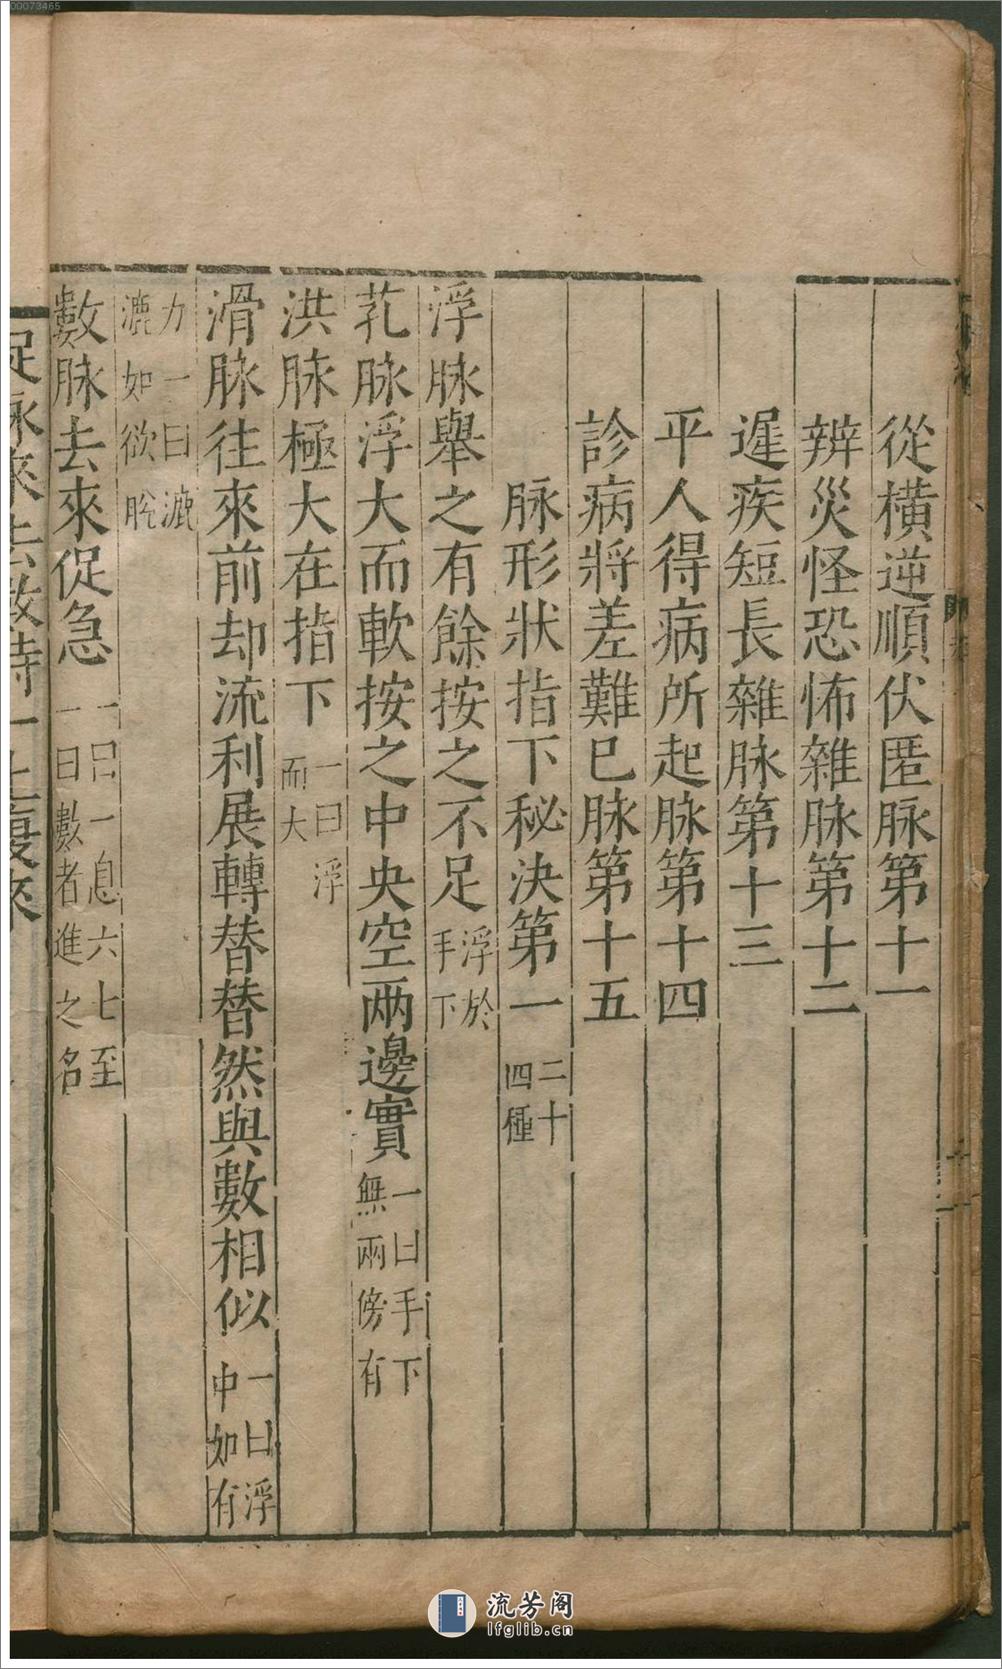 00073465
從橫逆順伏匿脉第十一
辨災怪恐怖雜脉第十二
遲疾短長雜脉第十三
平人得病所起脉第十四
診病將差難已脉第十五
脉形狀指下秘決第一 二十四種
浮脉舉之有餘按之不足 浮於手下
芤脉浮大而軟按之中央空两邊實 一曰手下無兩傍有
洪脉極大在指下 一曰浮而大
滑脉往來前却流利展轉替替然與數相似 一曰浮中如有
力一曰漉漉如欲脫
數脉去來促急 一曰一息六七至一曰數者進之名
促脉來去數時一止復來
流芳阁
lfglib.cn